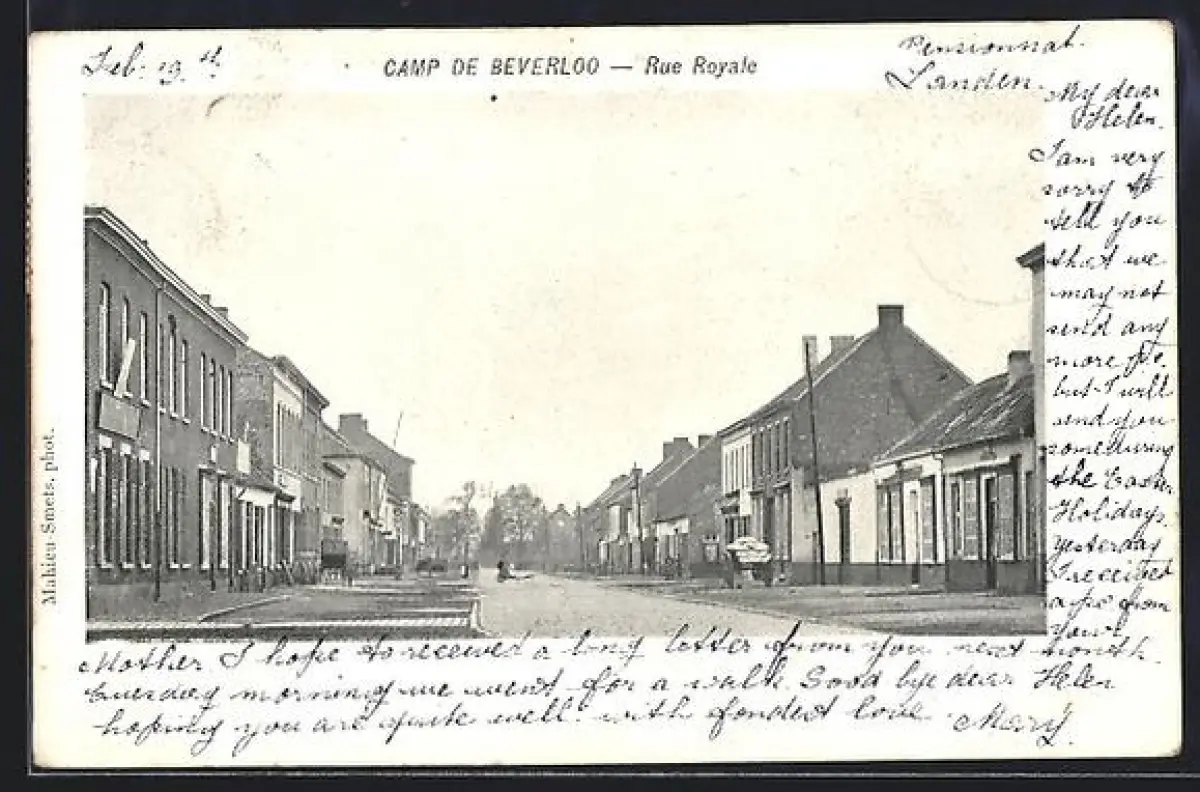 Feb. 19th
CAMP DE BEVERLOO — Rue Royale
Pensionnat.
Landen.
My dear
Helen.
I am very
sorry to
tell you
that we
may not
send any
more Ps.
but I will
send you
some during
the Easter
Holidays.
Yesterday
I received
a pc from
your
Mother I hope to received a long letter from you next month.
Tuesday morning we went for a walk. Good bye dear Helen
hoping you are quite well. with fondest love Mary.
Mahieu-Smets, phot.